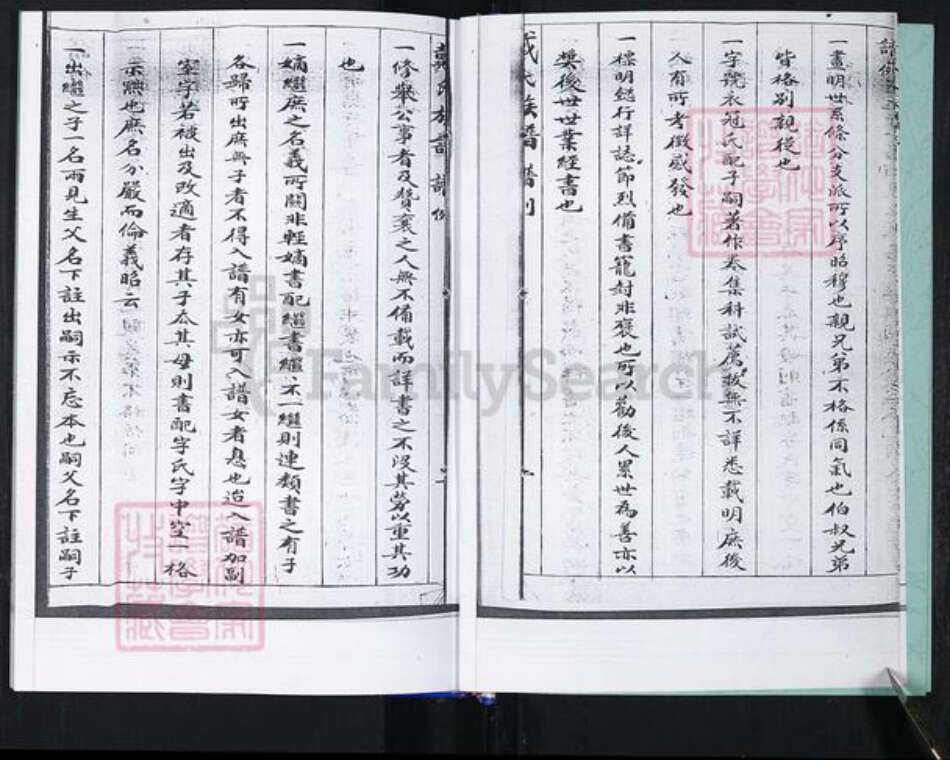 一畫明世系條分支派所以序昭穆也親兄弟不格係同氣也伯叔兄弟
皆格別親後也
一字號衣冠氏配子嗣著作卷集科試薦拔無不詳悉載明庶後
人有所考徵感發也
一標明懿行詳誌節烈備書寵封非褒也所以勸後人累世為善亦以
獎後世世業經書也
氏族譜
一修舉公事者及贊襄之人無不備載而詳書之不沒其勞以重其功
也
一嫡繼庶之名義所關非輕嫡書配繼書繼不一繼則連類書之有子
各歸所出庶無子者不得入譜有女亦可入譜女者息也迨入譜加副
室字若被出及改適者存其子去其母則書配字氏字中空一格
示貶也庶名分嚴而倫義昭云
一出繼之子一名兩見生父名下註出嗣示不忘本也嗣父名下註嗣子
FamilySearch